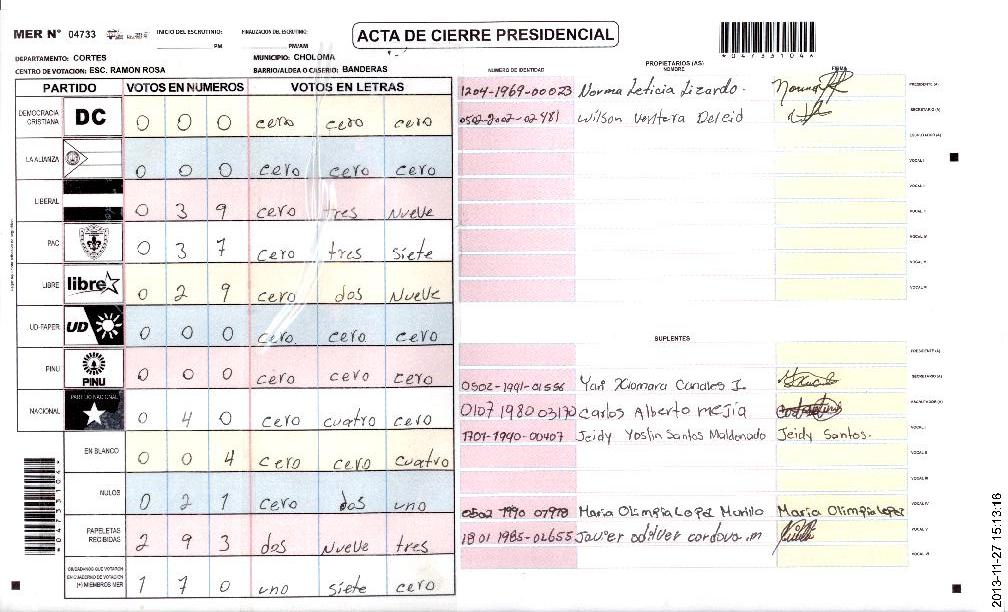 MER N° 04733
INICIO DEL ESCRUTINIO:
PM
FINALIZACION DEL ESCRUTINIO:
PM/AM
ACTA DE CIERRE PRESIDENCIAL
*04733104*
DEPARTAMENTO: CORTES
MUNICIPIO: CHOLOMA
CENTRO DE VOTACION: ESC. RAMON ROSA
BARRIO/ALDEA O CASERIO: BANDERAS
PARTIDO VOTOS EN NUMEROS VOTOS EN LETRAS
DEMOCRACIA CRISTIANA DC 0 0 0 cero cero cero
LA ALIANZA 0 0 0 cero cero cero
LIBERAL 0 3 9 cero tres Nueve
PAC 0 3 7 cero tres siete
LIBRE libre 0 2 9 cero dos Nueve
UD-FAPER UD 0 0 0 cero cero cero
PINU PINU 0 0 0 cero cero cero
NACIONAL PARTIDO NACIONAL 0 4 0 cero cuatro cero
EN BLANCO 0 0 4 cero cero cuatro
NULOS 0 2 1 cero dos uno
PAPELETAS RECIBIDAS 2 9 3 dos Nueve tres
CIUDADANOS QUE VOTARON EN CUADERNO DE VOTACION (+) MIEMBROS MER 1 7 0 uno siete cero
*04733104*
PROPIETARIOS (AS)
NUMERO DE IDENTIDAD NOMBRE FIRMA
1204-1969-00023 Norma Leticia Lizardo. PRESIDENTE (A)
0502-2002-02481 Wilson Ventera Deleid SECRETARIO (A)
ESCRUTADOR (A)
VOCAL I
VOCAL II
VOCAL III
VOCAL IV
VOCAL V
VOCAL VI
SUPLENTES
PRESIDENTE (A)
0502-1991-01556 Yari Xiomara Canales I. SECRETARIO (A)
0107 1980 03170 Carlos Alberto mejía ESCRUTADOR (A)
1701-1990-00407 Jeidy Yoslin Santos Maldonado Jeidy Santos. VOCAL I
VOCAL II
VOCAL III
0502 1990 07978 Maria Olimpia Lopez Murillo Maria Olimpia Lopez VOCAL IV
1801 1985-02655 Javier odilver cordova.m VOCAL V
VOCAL VI
2013-11-27 15:13:16